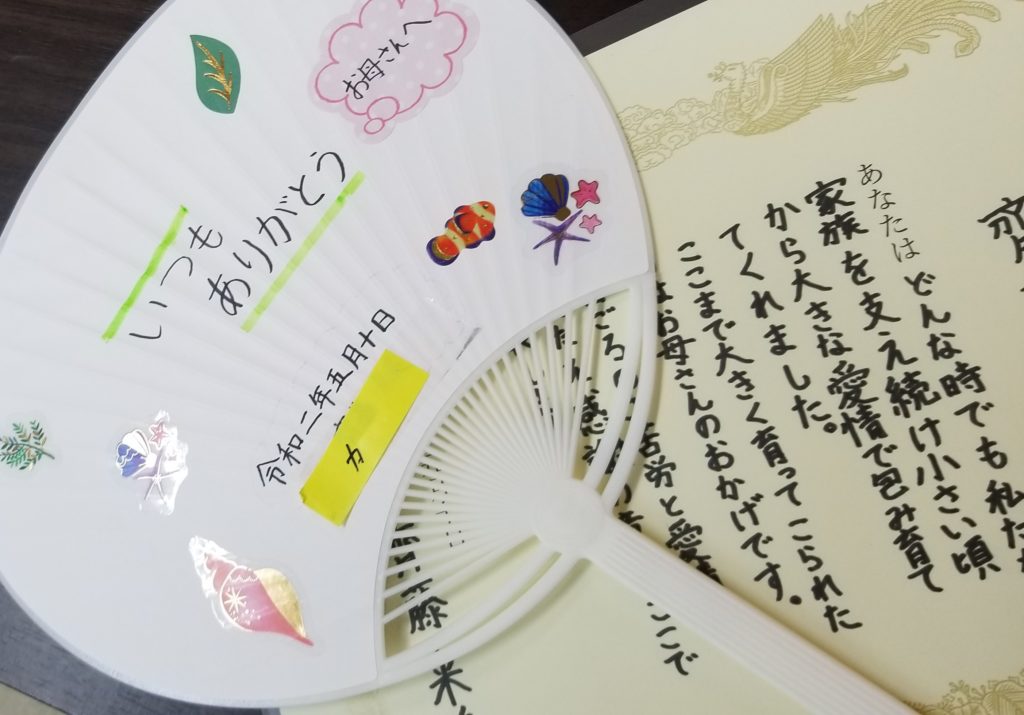 お母さんへ
いつも
ありがとう
令和二年五月十日
カ
あなたは
どんな時でも私た
家族を支え続け小さい頃
から大きな愛情で包み育て
てくれました。
ここまで大きく育ってこられた
はお母さんのおかげです。
苦労と愛
ここで